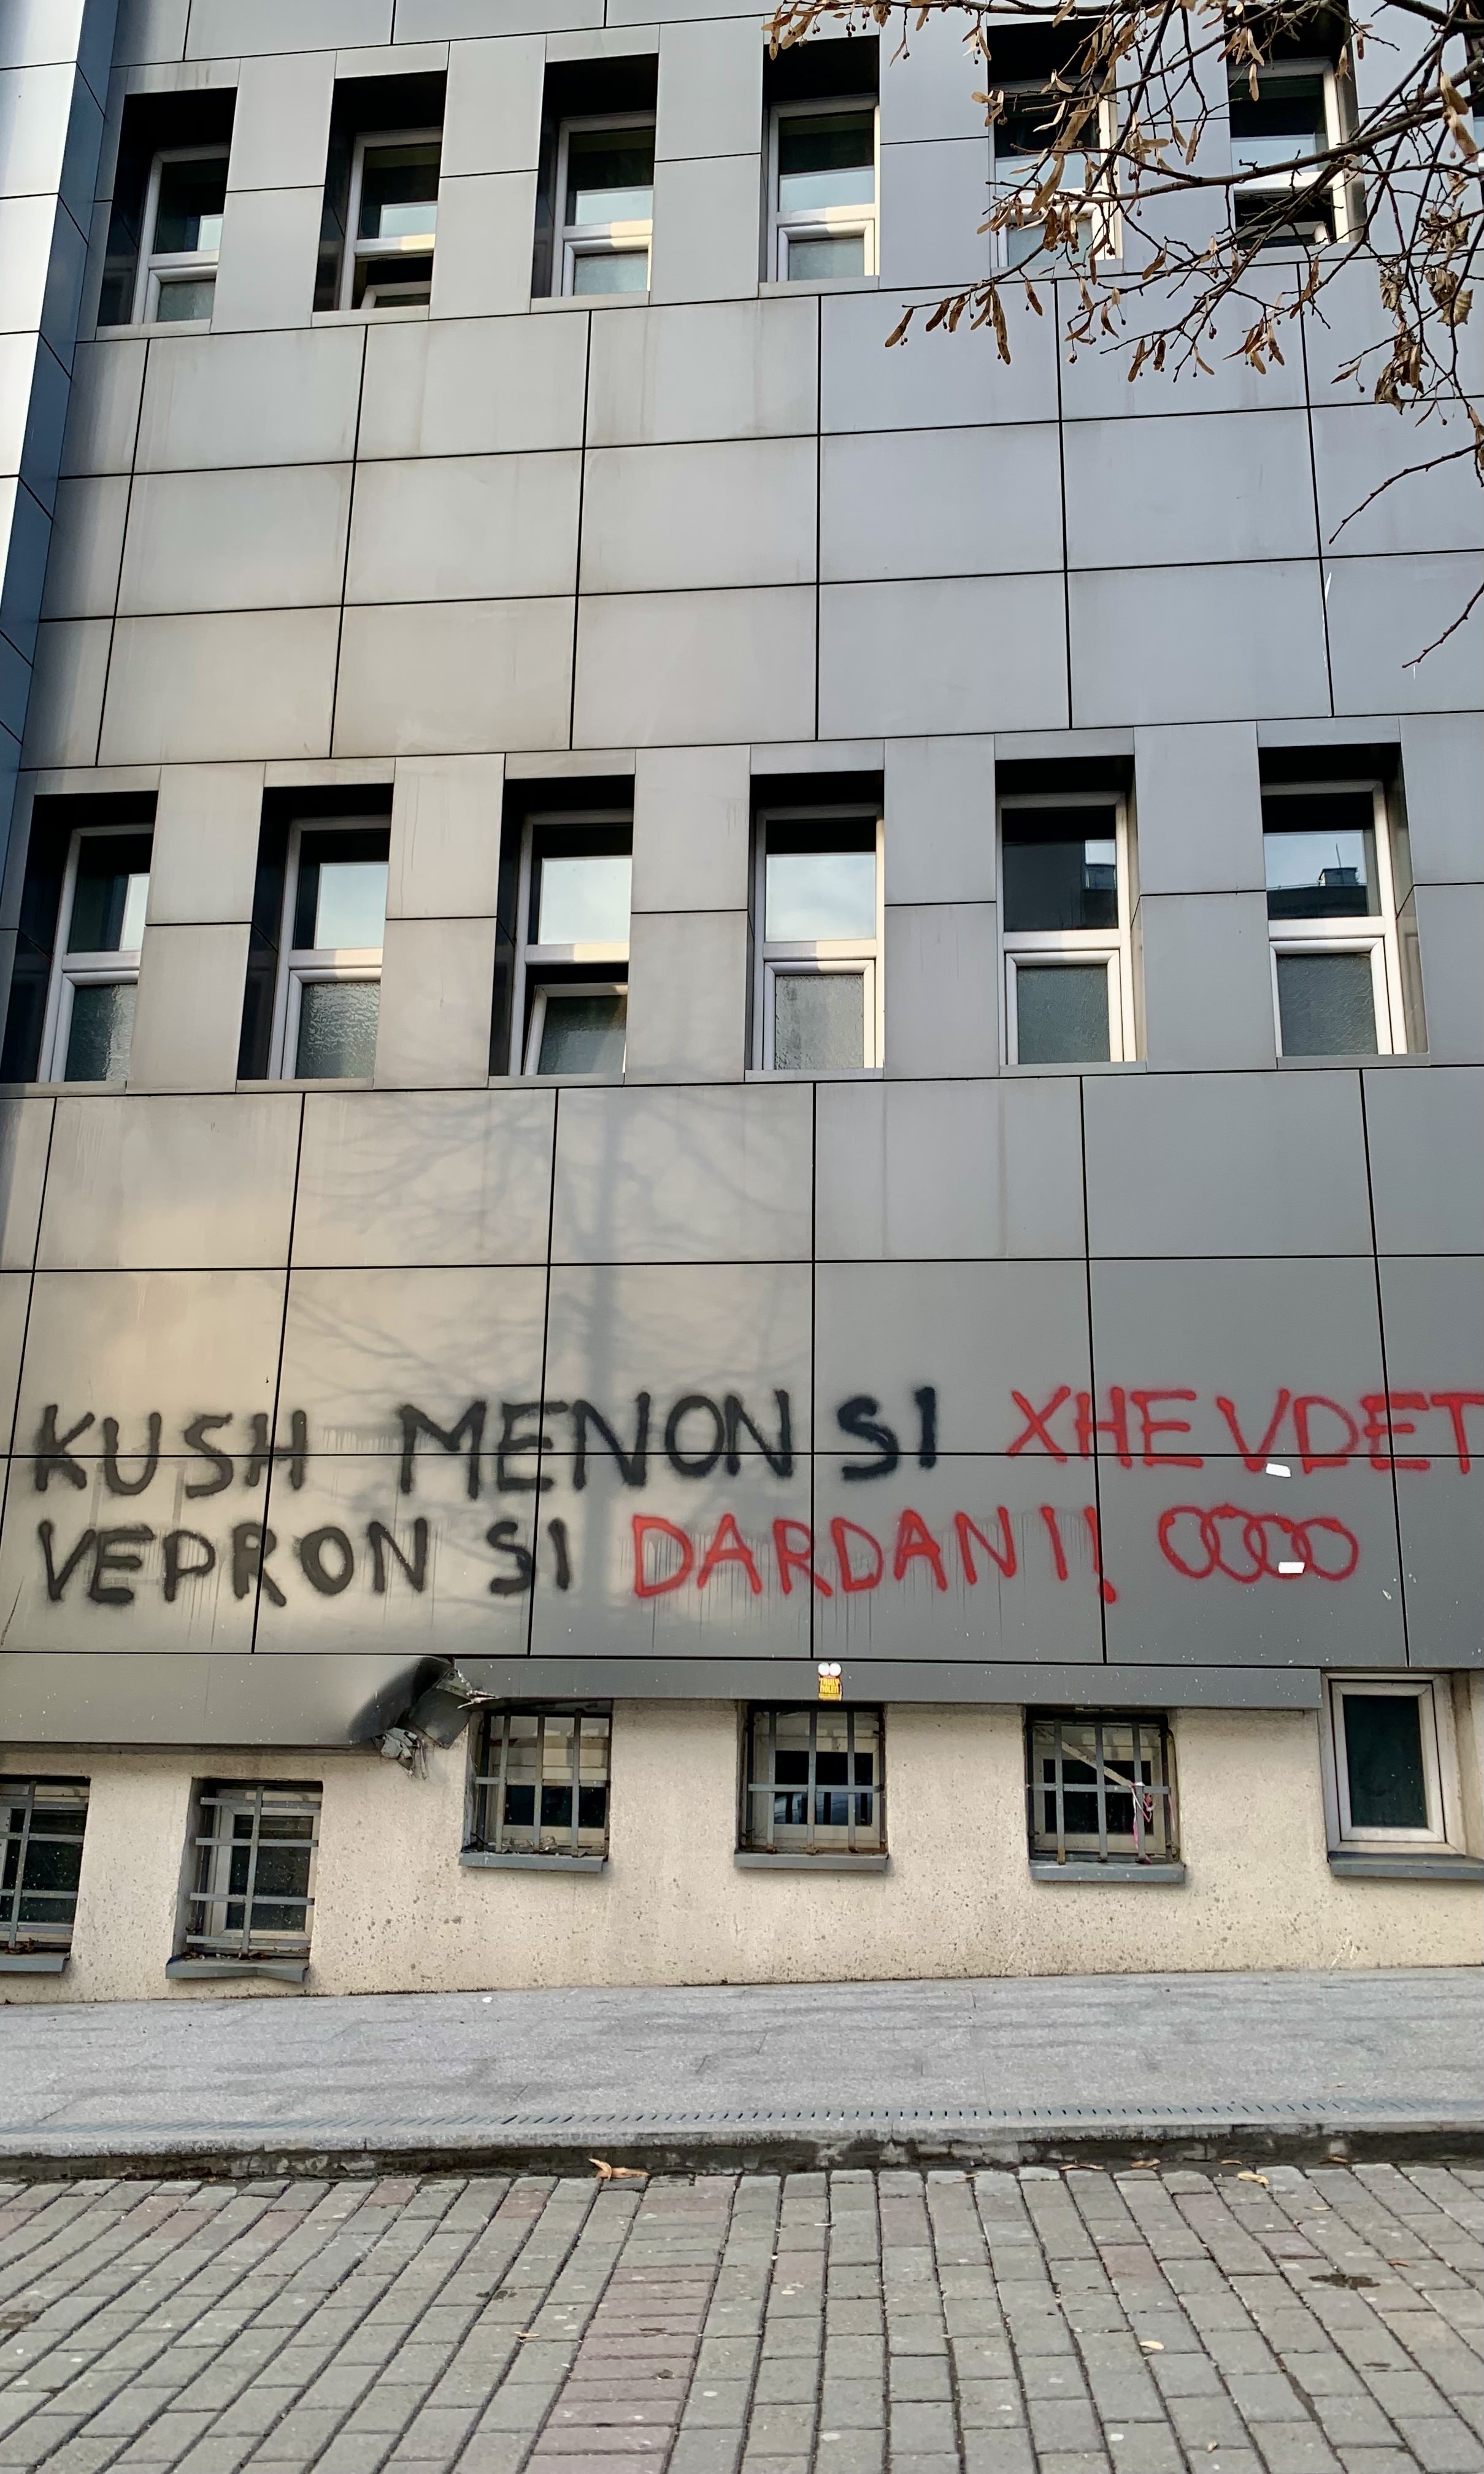 KUSH MENON SI XHEVDET
VEPRON SI DARDANI!